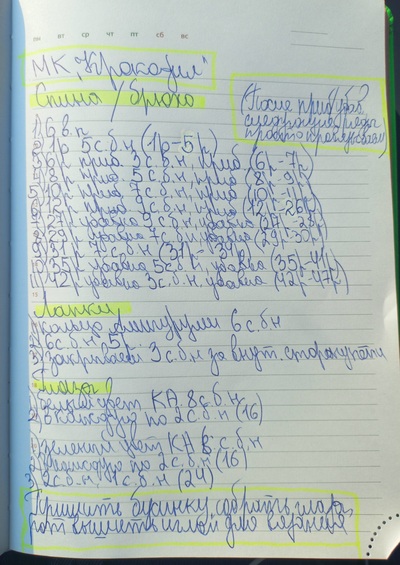 пн вт ср чт пт сб вс
МК "Крокодил"
Спина / брюхо
(После прибавок
следующие ряды
просто провязываем)
1) 6 в.п
2) 1р 5 с.б.н (1р-5р)
3) 6р приб 3 с.б.н, приб (6р-7р)
4) 8р приб. 5 с.б.н, приб (8р-9р)
5) 10р приб 7 с.б.н, приб (10р-11р)
6) 12р приб 9 с.б.н, приб (12р-26р)
7) 27р убавка 9 с.б.н, убавка (27-28р)
8) 29р убавка 7 с.б.н, убавка (29р-30р)
9) 31р 7 с.б.н (31р-34р)
10) 35р убавка 5 с.б.н, убавка (35р-41р)
11) 42р убавка 3 с.б.н, убавка (42р-47р)
Лапки
1) кольцо амигуруми 6 с.б.н
2) 6 с.б.н 5р.
3) закрепляем 3 с.б.н за внут. сторону
Глаза
1) белый цвет КА 8 с.б.н
2) в каждую по 2 с.б.н (16)
1) зеленый цвет КА 8 с.б.н
2) в каждую по 2 с.б.н (16)
3) 2 с.б.н, (24)
Пришить бусинку, собрать глаз,
рот вышить иглой для вязания